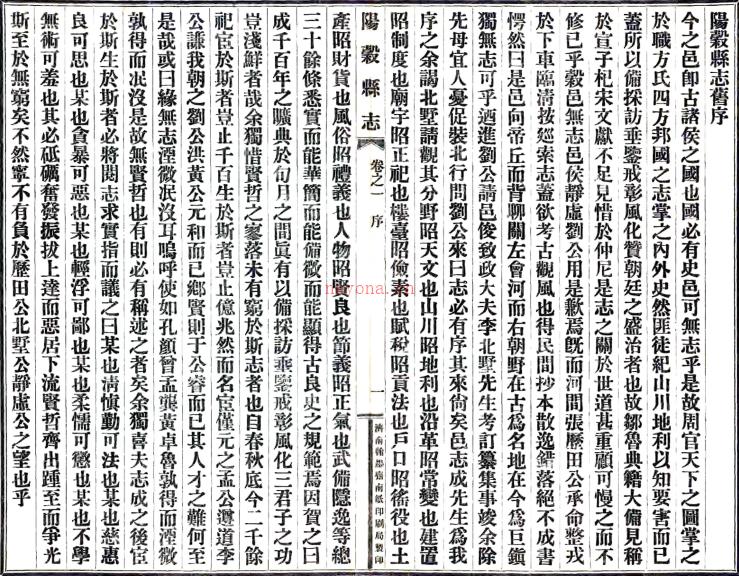 陽穀縣志舊序
今之邑卽古諸侯之國也國必有史邑可無志乎是故周官天下之圖掌之
於職方氏四方邦國之志掌之內外史然匪徒紀山川地利以知要害而已
蓋所以備採訪垂鑒戒彰風化贊朝廷之盛治者也故鄒魯典籍大備見稱
於宣子杞宋文獻不足見惜於仲尼是志之關於世道甚重顧可慢之而不
修已乎穀邑無志邑侯靜虛劉公用是歉焉旣而河間張歷田公承命整戎
於下車臨淸按廵索志蓋欲考古觀風也得民間抄本散逸錯落絕不成書
愕然曰是邑向帝丘而背聊關左會河而右朝野在古爲名地在今爲巨鎭
獨無志可乎迺進劉公請邑俊致政大夫李北墅先生考訂纂集事竣余除
先母宜人憂促裝北行問劉公來曰志必有序其來尙矣邑志成先生爲我
序之余謁北墅請觀其分野昭天文也山川昭地利也沿革昭常變也建置
昭制度也廟宇昭正祀也樓臺昭儉素也賦稅昭貢法也戶口昭徭役也土
陽穀縣志
卷之一 序
一
濟南翰墨齋南紙印刷局製印
產昭財貨也風俗昭禮義也人物昭賢良也節義昭正氣也武備隱逸等總
三十餘條悉實而能華簡而能備微而能顯得古良史之規範焉因賀之曰
成千百年之曠典於旬月之間眞有以備採訪垂鑒戒彰風化三君子之功
豈淺鮮者哉余獨惜賢哲之寥落未有窮於斯志者也自春秋底今二千餘
祀宦於斯者豈止千百生於斯者豈止億兆然而名宦僅元之孟公遵道李
公謙我朝之劉公洪黃公元和而已鄉賢則于公睿而已其人才之難何至
是哉或曰緣無志湮微泯沒耳嗚呼使如孔顏曾孟龔黃卓魯孰得而湮微
孰得而泯沒是故無賢哲也有則必有稱述之者矣余獨喜夫志成之後宦
於斯生於斯者必將閱志求實指而議之曰某也淸愼勤可法也某也慈惠
良可思也某也貪暴可惡也某也輕浮可鄙也某也柔懦可懲也某也不學
無術可羞也其必砥礪奮發振拔上達而惡居下流賢哲齊出踵至而爭光
斯至於無窮矣不然寧不有負於歷田公北墅公靜虛公之望也乎